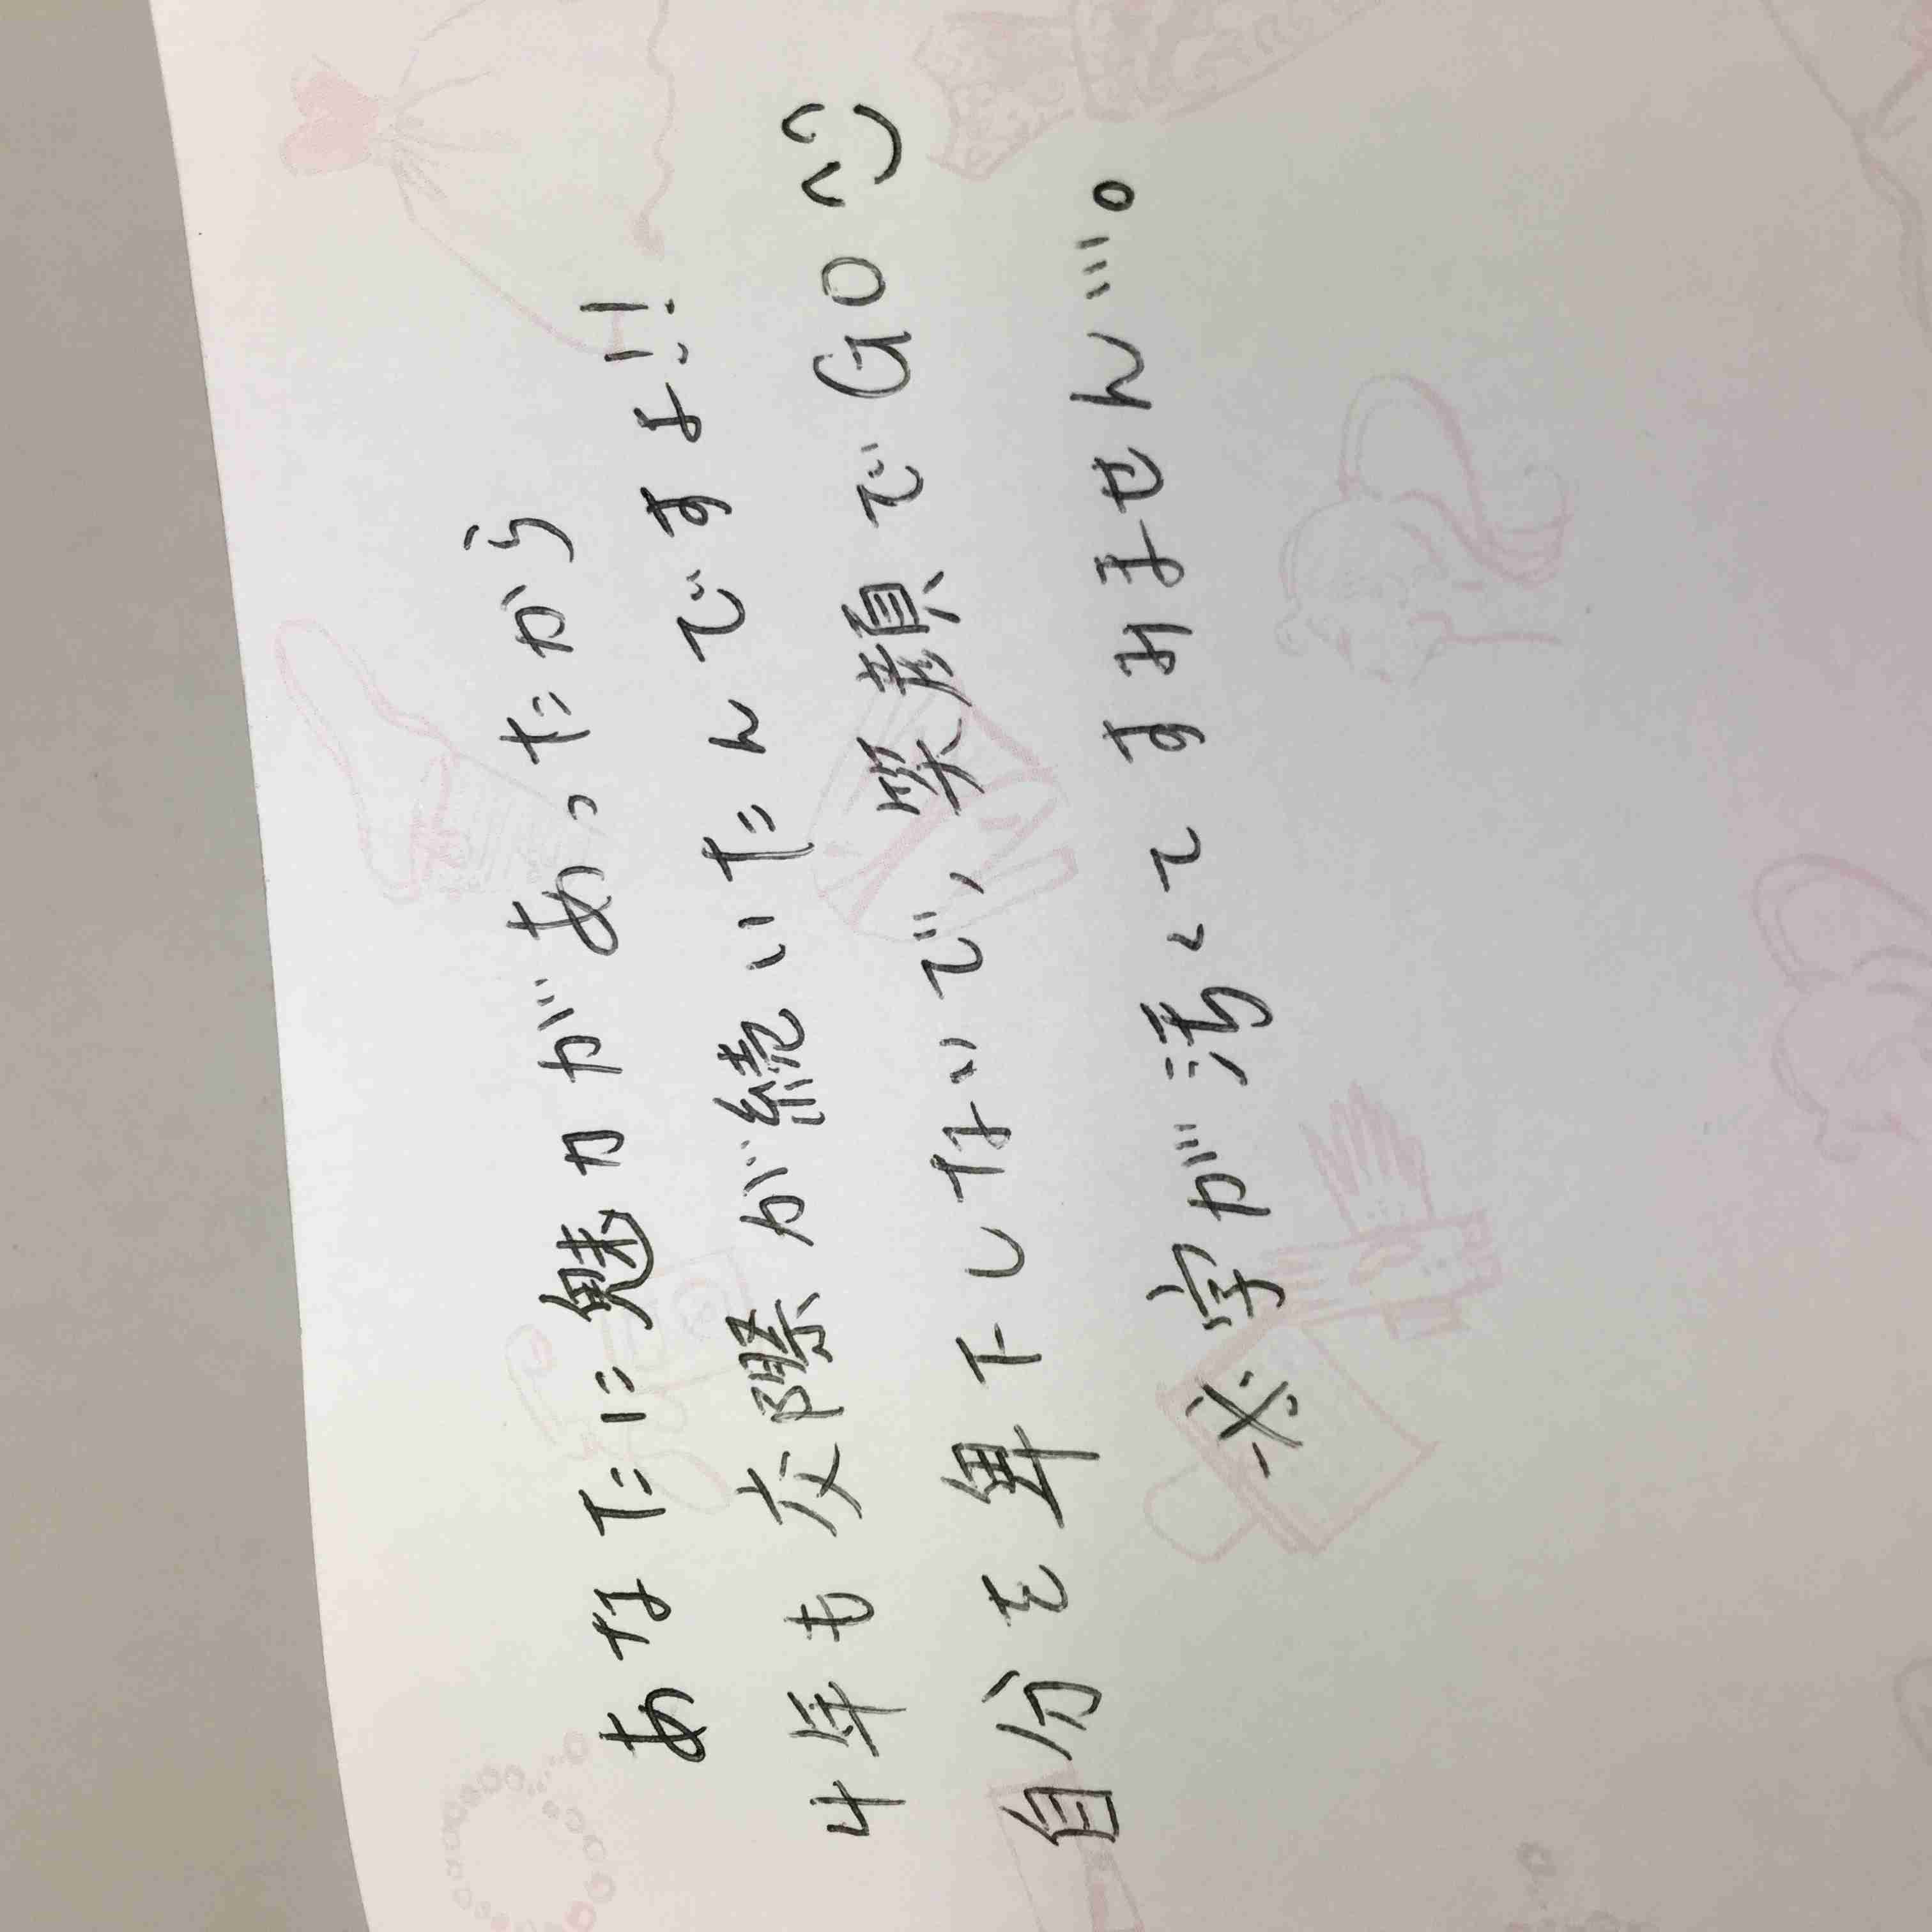 あなたに魅力があったから
4年も交際が続いたんですよ!!
自分を卑下しないで、笑顔でGO^^)
※字が汚くてすみません…。